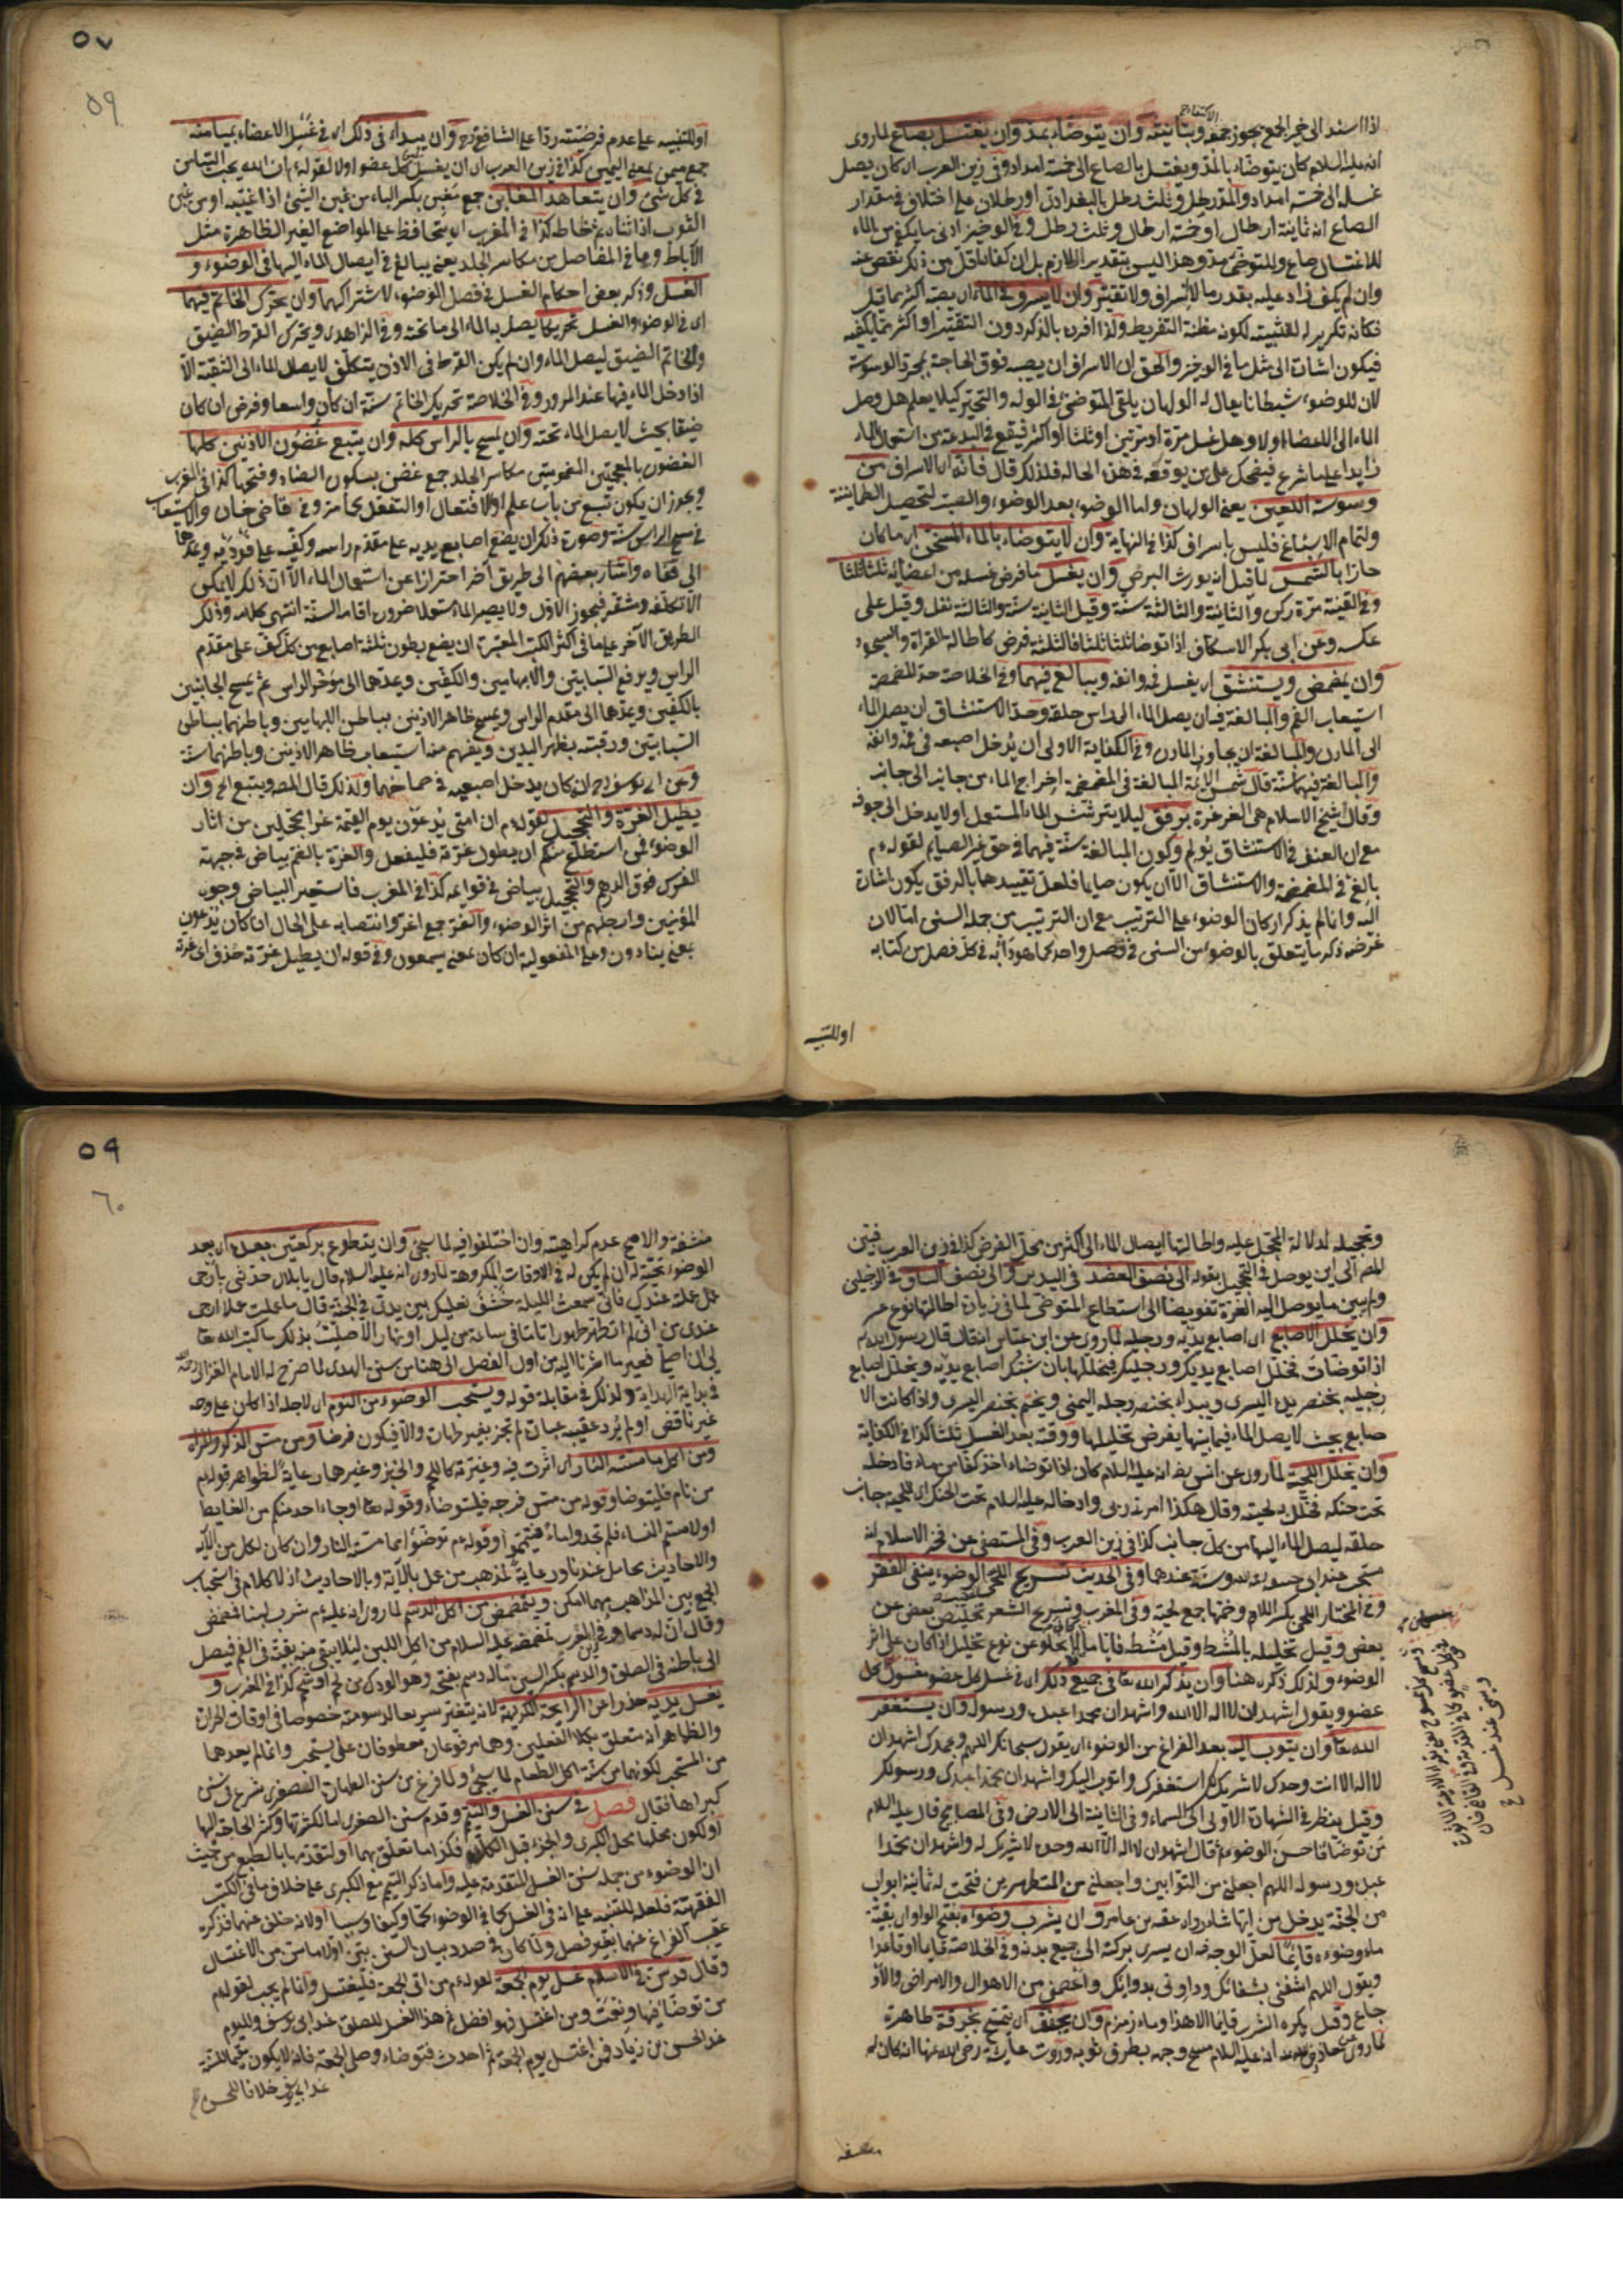 اذا اسند الى ضمير الجمع يجوز جمعه وتانيثه وان يتوضاء بمد وان يغتسل بصاع لما روى
انه عليه السلام كان يتوضاء بالمد ويغتسل بالصاع الى خمسة امداد وفي زين العرب اى كان يصل
غسله الى خمسة امداد والمد رطل وثلث رطل بالبغدادى او رطلان على اختلاف في مقدار
الصاع انه ثمانية ارطال او خمسة ارطال وثلث رطل وفي الوجيز ادنى ما يكفي من الماء
للاغتسال صاع وللمتوضئ مد وهذا ليس بتقدير اللازم بل ان كفاه اقل من ذلك نقص عنه
وان لم يكف زاد عليه بقدر ما لا اسراف ولا تقتير وان لا يسرف في الماء اى يصبه اكثر مما قيل
فكانه تكرير له للتثبيت لكونه مظنة التفريط ولذا افرده بالذكر دون التقتير او اكثر مما يكفيه
فيكون اشارة الى مثل ما في الوجيز والحق ان الاسراف ان يصبه فوق الحاجة بمجرد الوسوسة
لان للوضوء شيطانا يقال له الولهان يلقى المتوضئ في الوله والتحير كيلا يعلم هل وصل
الماء الى الاعضاء اولا وهل غسل مرة او مرتين او ثلثا او اكثر فيقع في البدعة من استعمال الماء
زايدا على ما شرع فيضحك على من يوقعه في هذه الحالة فلذلك قال فانه اى الاسراف من
وسوسة اللعين يعني الولهان واما الوضوء بعد الوضوء والصب لتحصيل الطمانينة
ولتمام الاسباغ فليس باسراف كذا في النهاية وان لا يتوضاء بالماء المسخن اى ما كان
حارا بالشمس لما قيل انه يورث البرص وان يغسل ما فرض غسله من اعضائه ثلثا ثلثا
وفي القنية مرة ركن والثانية والثالثة سنة وقيل الثانية سنة والثالثة نفل وقيل على
عكسه وعن ابى بكر الاسكاف اذا توضاء ثلثا ثلثا فالثلثة فرض كاطالة القراة والسجود
وان يمضمض ويستنشق اى يغسل فمه وانفه ويبالغ فيهما وفي الخلاصة حد المضمضة
استيعاب الفم والمبالغة فيه ان يصل الماء الى راس حلقه وحد الاستنشاق ان يصل الماء
الى المارن والمبالغة ان يجاوز المارن وفي الكفاية الاولى ان يدخل اصبعه في فمه وانفه
والمبالغة فيهما سنة قال شمس الائمة المبالغة في المضمضة اخراج الماء من جانب الى جانب
وقال شيخ الاسلام هى الغرغرة برفق ليلا يترشش الماء المستعمل او لا يدخل الى جوفه
مع ان العنف في الاستنشاق يؤلم وكون المبالغة سنة فيهما في حق غير الصيام لقوله م
بالغ في المضمضة والاستنشاق الا ان يكون صايما فلعل تقييدهما بالرفق يكون اشارة
اليه وانما لم يذكر اركان الوضوء على الترتيب مع ان الترتيب من جملة السنن اما لان
غرضه ذكر ما يتعلق بالوضوء من السنن في فصل واحد كما هو دابه في كل فصل من كتابه
اوللتنبيه
٥٧
٥٩
اوللتنبيه على عدم فرضيته ردا على الشافعى رح وان يبداء في ذلك اى في غسل الاعضاء بميامنه
جمع ميمن بمعنى اليمين كذا في زين العرب اى ان يغسل يمين كل عضو اولا لقوله م ان الله يحب التيامن
في كل شئ وان يتعاهد المغابن جمع مغبن بكسر الباء من غبن الشئ اذا غيبه او من غبن
الثوب اذا ثناه ثم خاطه كذا في المغرب اى يحافظ على المواضع الغير الظاهرة مثل
الآباط وما في المفاصل من مكاسر الجلد يعنى يبالغ في ايصال الماء اليها في الوضوء و
الغسل وذكر بعض احكام الغسل في فصل الوضوء لاشتراكهما وان يحرك الخاتم فيهما
اى في الوضوء والغسل تحريكا يصل به الماء الى ما تحته وفي الزاهدى ويحرك القرط الضيق
والخاتم الضيق ليصل الماء وان لم يكن القرط في الاذن يتكلف لايصال الماء الى الثقبة الا
اذا دخل الماء فيها عند المرور وفي الخلاصة تحريك الخاتم سنة ان كان واسعا وفرض ان كان
ضيقا بحيث لا يصل الماء تحته وان يمسح بالراس كله وان يتبع غضون الاذنين كلها
الغضون بالمعجمتين المضمومتين مكاسر الجلد جمع غضن بسكون الضاد وفتحها كذا في المغرب
ويجوز ان يكون تتبع من باب علم او الافتعال او التفعل كما مر وفي قاضى خان والاستيعاب
في مسح الراس سنة وصورة ذلك ان يضع اصابع يديه على مقدم راسه وكفيه على فوديه ويمدهما
الى قفاه واشار بعضهم الى طريق آخر احترازا عن استعمال الماء الا ان ذلك لا يمكن
الا بتكلف ومشقة فيجوز الاول ولا يصير الماء مستعملا ضرورة اقامة السنة انتهى كلامه وذلك
الطريق الآخر على ما في اكثر الكتب المعتبرة ان يضع بطون ثلثة اصابع من كل كف على مقدم
الراس ويرفع السبابتين والابهامين والكفين ويمدهما الى مؤخر الراس ثم يمسح الجانبين
بالكفين ويمدهما الى مقدم الراس ويمسح ظاهر الاذنين بباطن الابهامين وباطنهما بباطن
السبابتين ورقبته بظهر اليدين ويفهم منه استيعاب ظاهر الاذنين وباطنهما سنة
وعن ابى يوسف رح ان كان يدخل اصبعيه في صماخهما ولذلك قال المصـ ويتبع الخ وان
يطيل الغرة والتحجيل لقوله م ان امتى يدعون يوم القيمة غرا محجلين من آثار
الوضوء فمن استطاع منكم ان يطول غرته فليفعل والغرة بالضم بياض في جبهة
الفرس فوق الدرهم والتحجيل بياض في قوائمه كذا في المغرب فاستعير البياض وجوه
المؤمنين وارجلهم من اثر الوضوء والغر جمع اغر وانتصابه على الحال ان كان يدعون
بمعنى ينادون وعلى المفعولية ان كان بمعنى يسمعون وفي قوله ان يطيل غرته حذف اى غرته
وتحجيله لدلالة المحجل عليه واطالتها ايصال الماء الى اكثر من محل الفرض كذا في زين العرب فبين
المصـ الى اين يوصل في التحجيل بقوله الى نصف العضد في اليدين والى نصف الساق في الرجلين
ولم يبين ما يوصل اليه الغرة تفويضا الى استطاع المتوضى لما في زيادة اطالتها نوع عسر
وان يخلل الاصابع اى اصابع يديه ورجليه لما روى عن ابن عباس انه قال قال رسول الله م
اذا توضات فخلل اصابع يديك ورجليك فيخللها بان شبك اصابع يديه ويخلل اصابع
رجليه بخنصر يده اليسرى ويبداء بخنصر رجله اليمنى ويختم بخنصر اليسرى واذا كانت الا
صابع بحيث لا يصل الماء فيما بينها يفرض تخليلها ووقته بعد الغسل ثلثا كذا في الكفاية
وان يخلل اللحية لما روى عن انس رضـ انه عليه السلام كان اذا توضاء اخذ كفا من ماء فادخله
تحت حنكه فخلل به لحيته وقال هكذا امرنى ربى وادخاله عليه السلام تحت الحنك اى اللحية جانب
حلقه ليصل الماء اليها من كل جانب كذا في زين العرب وفي المستصفى عن فخر الاسلام انه
مستحب عند ابى حنيفة رح وسنة عندهما وفي الحديث تسريح اللحى الوضوء ينفى الفقر
وفي المختار اللحى بكسر اللام وضمها جمع لحية وفي المغرب وتسريح الشعر تخليص بعضه عن
بعض وقيل تخليله بالمشط وقيل مشطه فايا ما كان لا يخلو عن نوع تخليل اذا كان على اثر
الوضوء ولذلك ذكره هنا وان يذكر الله تعا في جميع ذلك اى في غسل كل عضو مغسول كل
عضو ويقول اشهد ان لا اله الا الله واشهد ان محمدا عبده ورسوله وان يستغفر
الله تعا وان يتوب اليه بعد الفراغ من الوضوء اى يقول سبحانك اللهم وبحمدك اشهد ان
لا اله الا انت وحدك لا شريك لك استغفرك واتوب اليك واشهد ان محمدا عبدك ورسولك
وقيل ينظر في الشهادة الاولى الى السماء وفي الثانية الى الارض وفي المصابيح قال عليه السلام
من توضا فاحسن الوضوء ثم قال اشهد ان لا اله الا الله وحده لا شريك له واشهد ان محمدا
عبده ورسوله اللهم اجعلنى من التوابين واجعلنى من المتطهرين فتحت له ثمانية ابواب
من الجنة يدخل من ايها شاء رواه عقبه بن عامر وان يشرب وضوءه بفتح الواو اى بقية
ماء وضوءه قايما لعل الوجه فيه ان يسرى بركته الى جميع بدنه وفي الخلاصة قايما او قاعدا
ويقول اللهم اشفنى بشفائك وداونى بدوائك واعصمنى من الاهوال والامراض والاو
جاع وقيل يكره الشرب قايما الا هذا وماء زمزم وان يجفف اى يتمسح بخرقة طاهرة
لما روى عن معاذ رضى الله عنه انه عليه السلام مسح وجهه بطرف ثوبه وروت عايشة رضى الله عنها انه كان له
منشفة
٥٩
٦٠
منشفة والاصح عدم كراهيته وان اختلفوا فيه لما سيجئ وان يتطوع بركعتين بعده اى بعد
الوضوء تحية له ان لم يكن له في الاوقات المكروهة لما روى انه عليه السلام قال يا بلال حدثنى بارجى
عمل عملته عندك فانى سمعت الليلة خشف نعليك بين يدى في الجنة قال ما عملت عملا ارجى
عندى من انى لم اتطهر طهورا تاما في ساعة من ليل او نهار الا صليت بذلك ما كتب الله تعا
لى ان اصلى فجميع ما اشرنا اليه من اول الفصل الى هنا من سنن الهدى لما صرح له الامام الغزالى
في بداية الهداية ولذلك في مقابلة قوله ويستحب الوضوء من النوم اى لاجله اذا كان على وجه
غير ناقض او لم يرد عقيبه عبادة لم تجز بغير طهارة والا فيكون فرضا ومن مس الذكر والمراة
ومن اكل ما مسته النار اى اثرت فيه وغيرته كاللحم والخبز وغيرهما رعاية لظواهر قوله م
من نام فليتوضا وقوله من مس فرجه فليتوضاء وقوله تعا او جاء احد منكم من الغايط
او لامستم النساء فلم تجدوا ماء فتيمموا وقوله م توضؤا مما مسته النار وان كان لكل من الآية
والاحاديث محامل عندنا ورعاية لمذهب من عمل بالآية وبالاحاديث اذ لا كلام في استحباب
الجمع بين المذاهب مهما امكن ويتمضمض من اكل الدسم لما روى انه عليه م شرب لبنا فمضمض
وقال ان له دسما وفي المغرب تمضمضه عليه السلام من اكل اللبن ليلا يبقى منه بقية في الفم فيصل
الى باطنه في الصلوة والدسم بكسر السين ما له دسم بفتحه وهو الودك من لحم او شحم كذا في المغرب و
يغسل يديه حذرا عن الرايحة الكريهة لانه يتغير سريعا لدسومته خصوصا في اوقات الحرارة
والظاهر انه متعلق بكلا الفعلين وهما مرفوعان معطوفان على يستحب وانما لم يعدهما
من المستحب لكونهما من سنة اكل الطعام لما سيجئ ولما فرغ من سنن الطهارة الصغرى شرع في سنن
كبراها فقال فصل في سنن الغسل والتيمم وقدم سنن الصغرى اما لكثرتها وكثر الحاجة اليها
او لكون محلها محل الكبرى والجزء قبل الكل فكذا ما تعلق بهما او لتقدمها بالطبع من حيث
ان الوضوء من جملة سنن الغسل المتقدمة عليه واما ذكر التيمم مع الكبرى على خلاف ما في الكتب
الفقهية فلعله للتنبيه على انه في الغسل كما في الوضوء كما وكيفا وسببا او لانه خلف عنهما فذكره
عقيب الفراغ عنهما بغير فصل ولما كان في صدد بيان السنن بين اولا ما سن من الاغتسال
وقال قد سن في الاسلام غسل يوم الجمعة لقوله م من اتى الجمعة فليغتسل وانما لم يجب لقوله م
من توضا فبها ونعمت ومن اغتسل فهو افضل ثم هذا الغسل للصلوة عند ابى يوسف ولليوم
عند الحسن بن زياد فمن اغتسل يوم الجمعة ثم احدث فتوضاء وصلى الجمعة فانه لا يكون مقيما للسنة
عند ابى يوسف خلافا للحسن